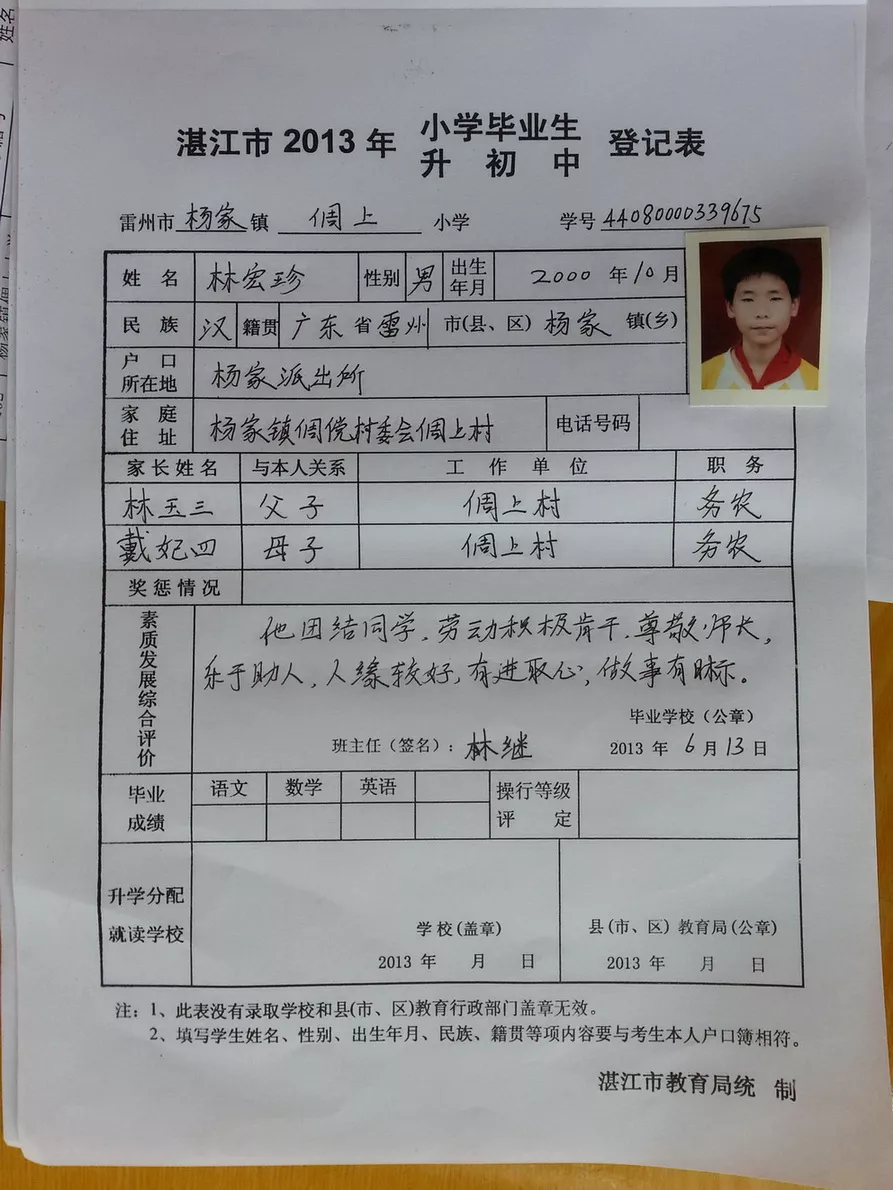 湛江市 2013 年 小学毕业生 登记表
升 初 中
雷州市 杨家 镇 倜上 小学 学号 44080000339675
姓 名 林宏珍 性别 男 出生年月 2000 年 10 月
民 族 汉 籍贯 广东 省 雷州 市(县、区) 杨家 镇(乡)
户 口 所在地 杨家派出所
家 庭 住 址 杨家镇倜傥村委会倜上村 电话号码
家长姓名 与本人关系 工 作 单 位 职 务
林玉三 父子 倜上村 务农
戴妃四 母子 倜上村 务农
奖惩情况
素质发展综合评价
他团结同学,劳动积极肯干,尊敬师长,
乐于助人,人缘较好,有进取心,做事有目标。
毕业学校(公章)
班主任(签名): 林继 2013 年 6 月 13 日
毕业成绩 语文 数学 英语 操行等级评 定
升学分配
就读学校
学校(盖章) 县(市、区) 教育局(公章)
2013 年 月 日 2013 年 月 日
注: 1、此表没有录取学校和县(市、区)教育行政部门盖章无效。
2、填写学生姓名、性别、出生年月、民族、籍贯等项内容要与考生本人户口簿相符。
湛江市教育局统 制
姓名